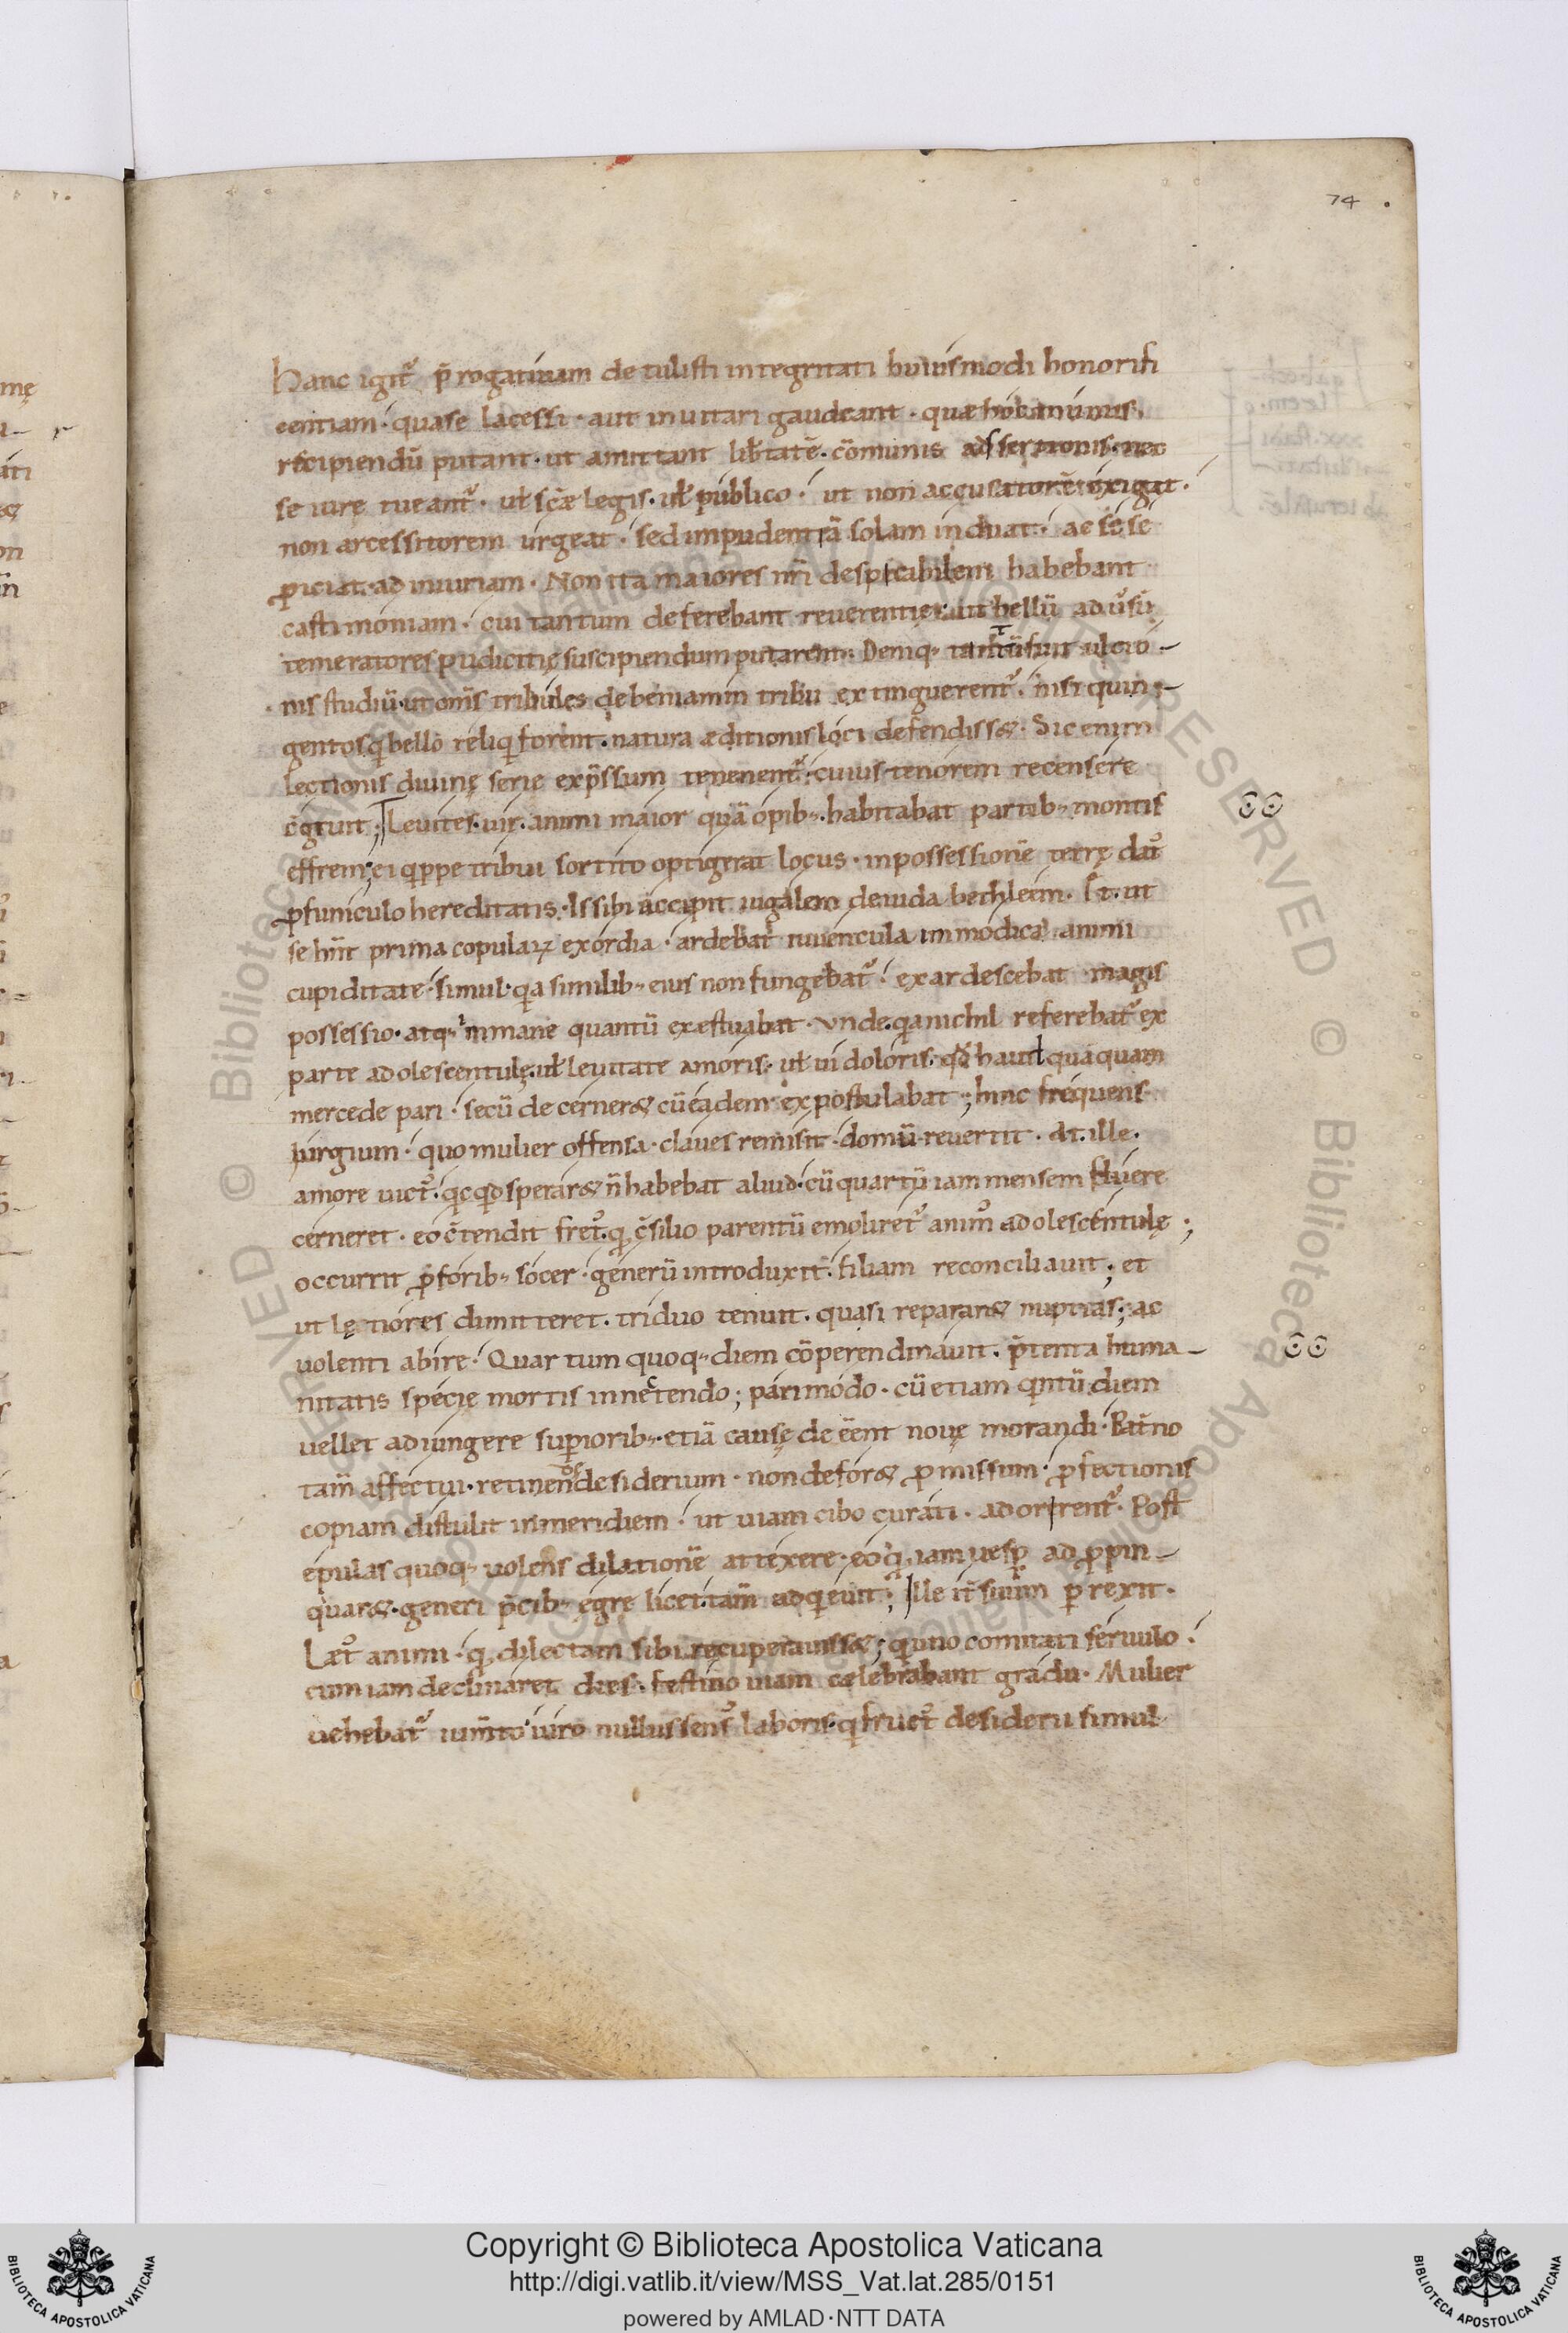 74
Hanc igit᷒ p̄rogatiuam detulisti integritati huiusmodi honorifi
centiam · quase lacessi · aut inuitari gaudeant · quæ hoc animus
recipiendū putant · ut amittant lib̄tatē · cōmunis adsertionis · nec
se iure tueant᷒ · ut̄ sc̄æ legis · ut̄ publico · ut non accusatorē exigat ·
non arcessitorem urgeat · sed impudentiā solam induat · ac sese
ꝓiciat · ad iniuriam · Non ita maiores nr̄i despicabilem habebant
castimoniam · cui tantum deferebant reuerentię · ut bellū aduersū
temeratores pudicitię suscipiendum putarent · Deniq· tantū fuit ulcio-
nis studiū · ut om̄s tribules de beniamin tribu extinguerent᷒ · nisi quin-
gentos q̄ bello reliqui forent · natura æditionis loci defendisset · Sic enim
lectionis diuinę serie exp̄ssum tenent᷒ · cuius tenorem recensere
c̄gruit; Leuites · uir · animi maior quā opib· · habitabat partib· montis
effrem; ei q̄ppe tribui sortito optigerat locus · in possessionē terrę dat᷒
ꝓ funiculo hereditatis · Is sibi accipit iugalem de iuda bethleem · Et · ut
se hn̄t prima copulaꝝ exordia · ardebat iuuencula immodica animi
cupiditate · simul · q̄a similib· eius non fungebat᷒ · exardescebat magis
possessio · atq· inmane quantū exæstuabat · Vnde · q̄a nichil referebat᷒ ex
parte adolescentulę · ut̄ leuitate amoris · ut̄ ui doloris · qd̄ haud quaquam
mercede pari · secū decerneret cū eadem expostulabat; hinc frequens
iurgium · quo mulier offensa · claues remisit · domū reuertit · At ille ·
amore uict᷒ · q̄ qd sperarꝫ n̄ habebat aliud · cū quartū iam mensem fluere
cerneret · eo c̄tendit fret᷒ · q̄ c̄silio parentū emoliret᷒ anim᷒ adolescentulę;
occurrit ꝓ forib· socer · generū introduxit · filiam reconciliauit; et
ut lętiores dimitteret · triduo tenuit · quasi repararꝫ nuptias; ac
uolenti abire · Quartum quoq· diem cōperendinauit · p̄tenta huma-
nitatis specie mortis innectendo; pari modo · cū etiam q̄ntū diem
uellet adiungere superiorib· · etiā causę deēēnt nouę morandi · Pat̄no
tam̄ affectui · retinendi desiderium · non deforꝫ ꝓmissum · ꝓfectionis
copiam distulit in meridiem · ut uiam cibo curati · adorirent᷒ · Post
epulas quoq· uolens dilationē attexere · eo q̄ iam uesp̄ adꝓpin-
quarꝫ · generi p̄cib· egre licet tam̄ adq̄euit; Ille it̄ suum perrexit ·
Læt᷒ animi · q̄ dilectam sibi recuperauissꝫ; q̄ uno comitati seruulo ·
cum iam declinaret dies · festino uiam celebrabant gradu · Mulier
uehebat᷒ ium̄to uiro nullus sens᷒ laboris · q̄ fruct᷒ desiderii simul
Copyright © Biblioteca Apostolica Vaticana
http://digi.vatlib.it/view/MSS_Vat.lat.285/0151
powered by AMLAD·NTT DATA
BIBLIOTECA APOSTOLICA VATICANA
BIBLIOTECA APOSTOLICA VATICANA